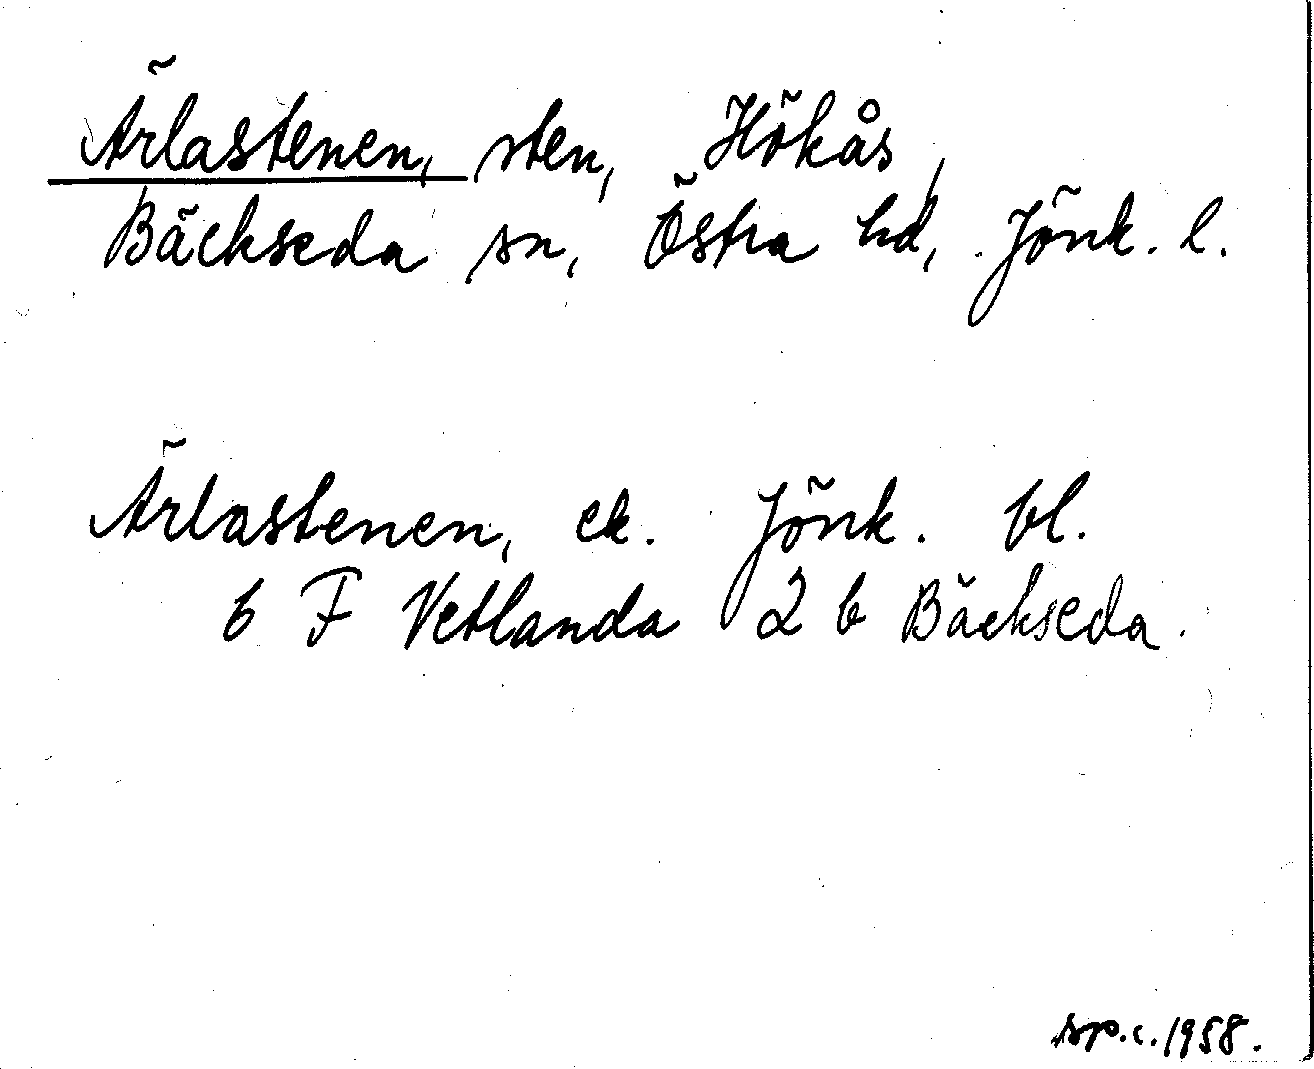 Ärlastenen, sten, Hökås,
Bäckseda sn, Östra hd, Jönk. l.
Ärlastenen, ek. Jönk. bl.
6 F Vetlanda 2 b Bäckseda.
sp.c. 1958.